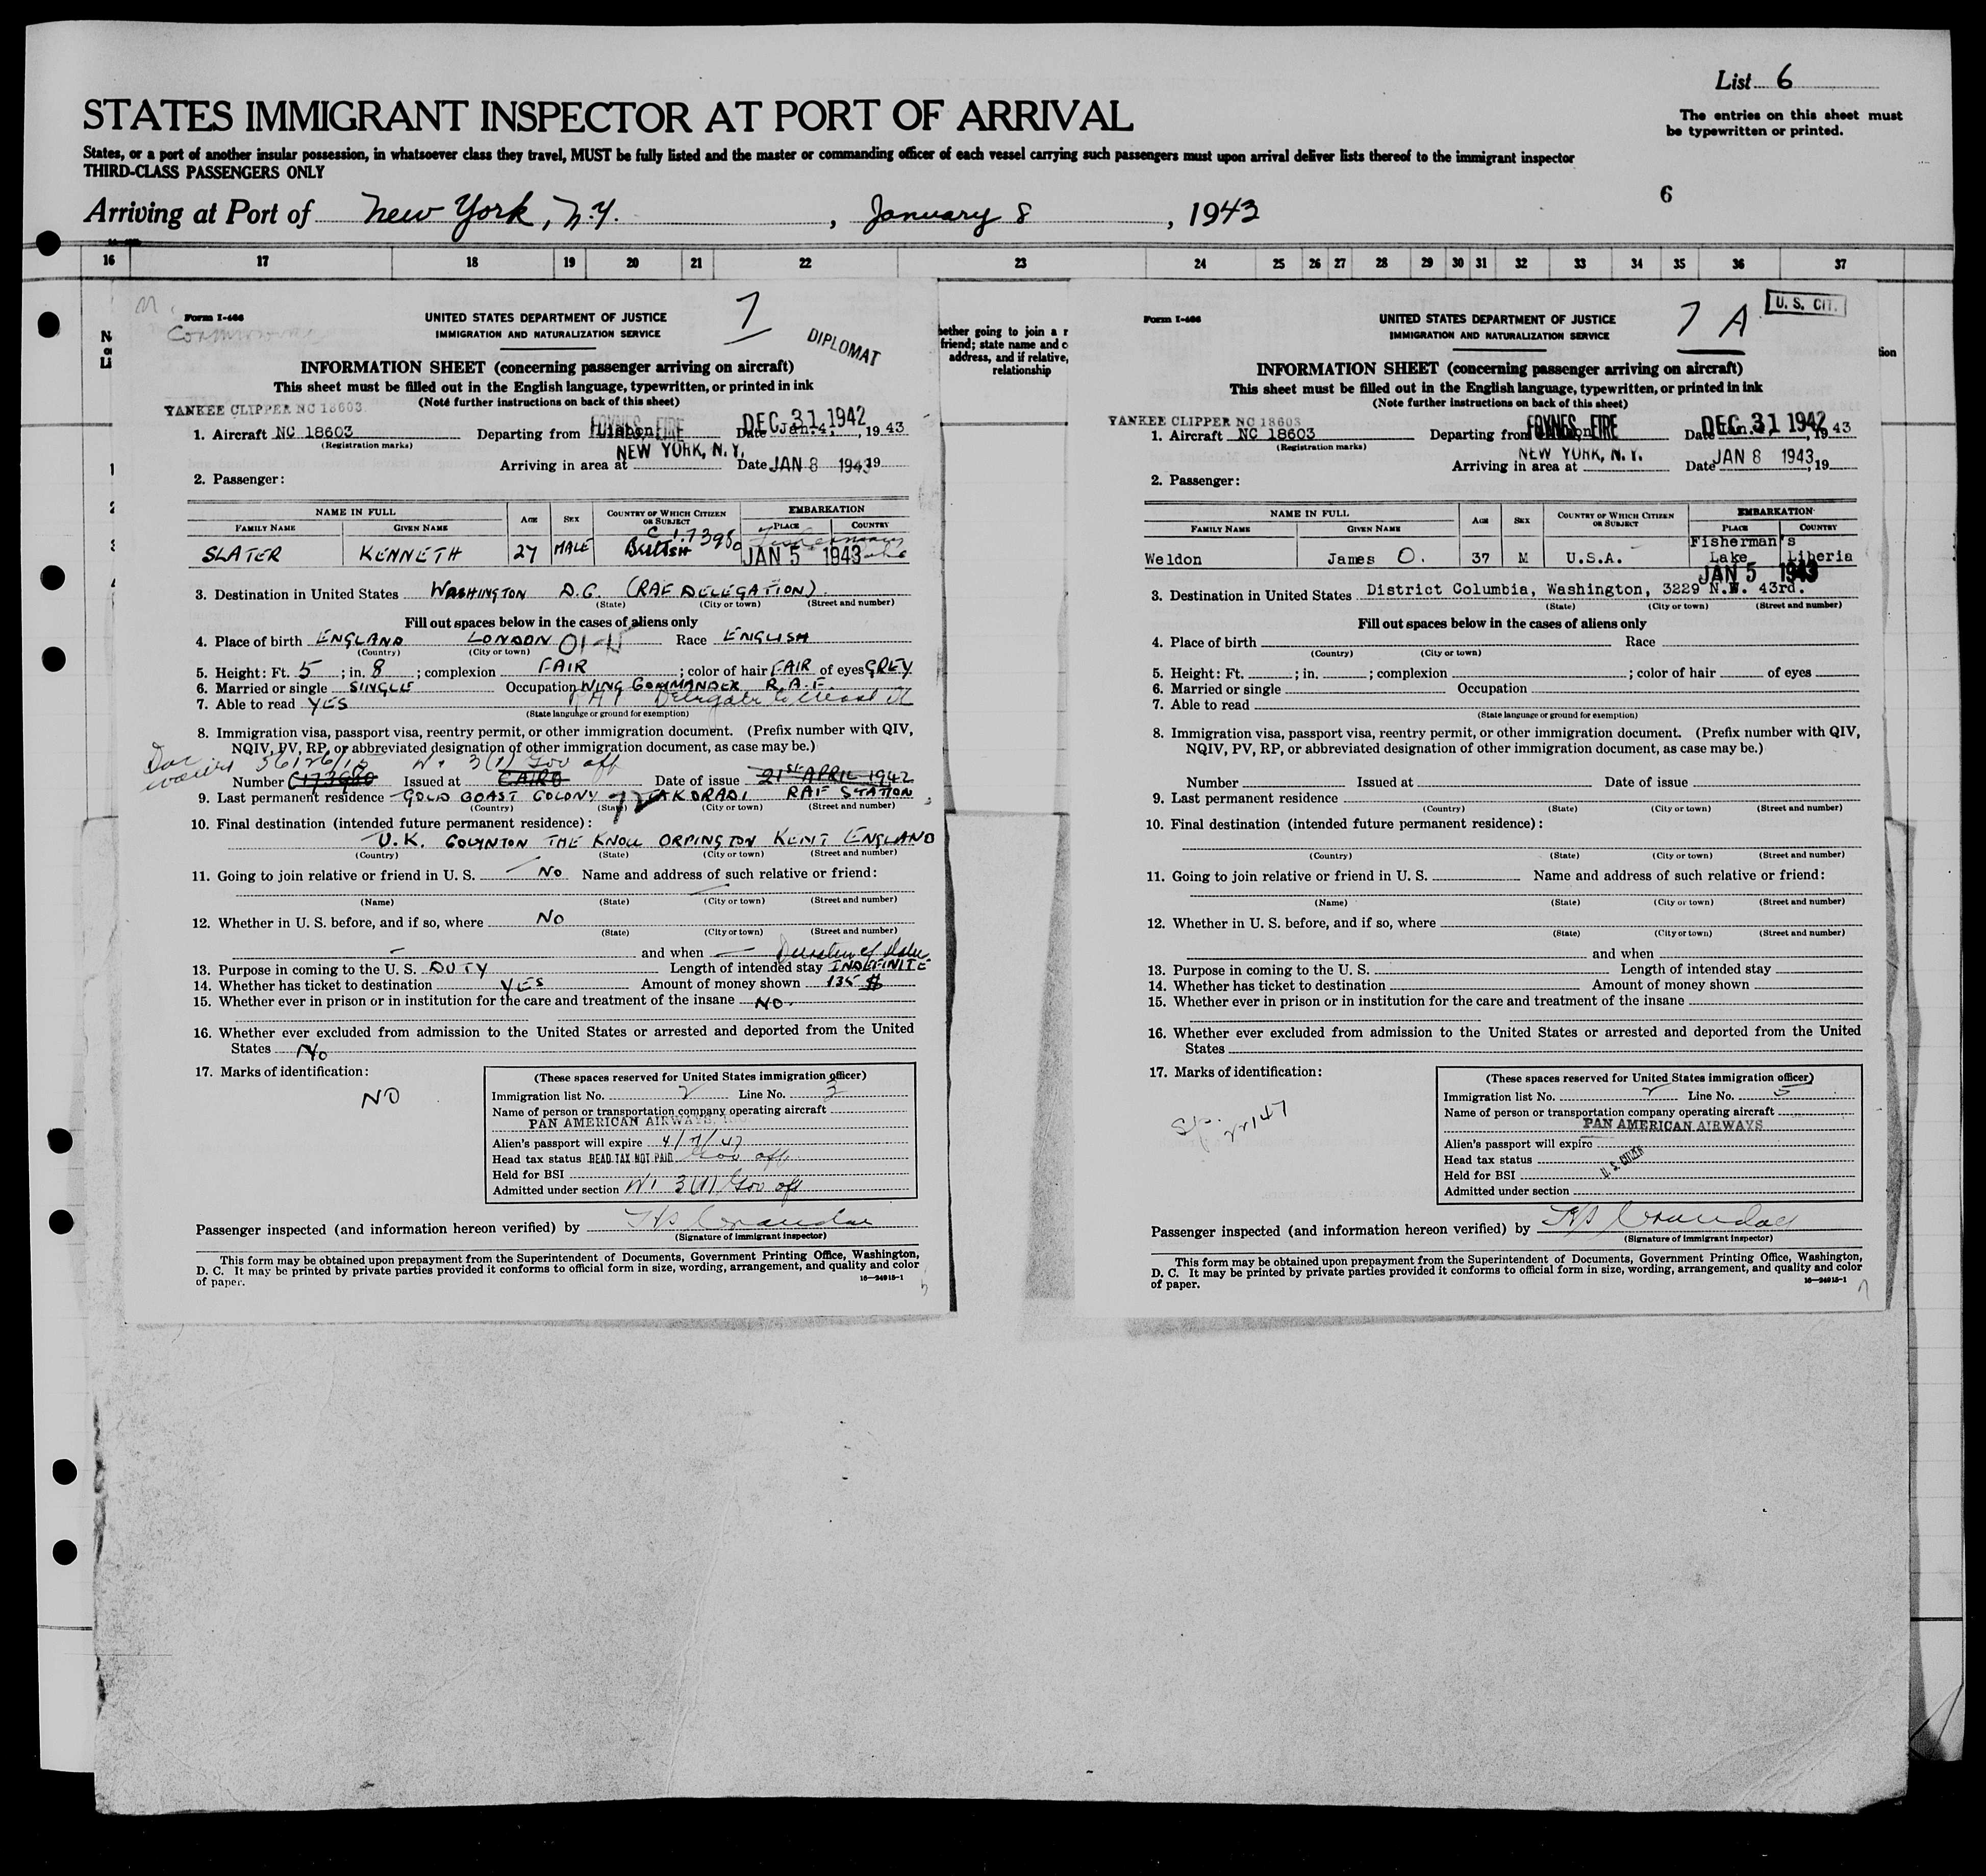 List 6
STATES IMMIGRANT INSPECTOR AT PORT OF ARRIVAL
The entries on this sheet must
be typewritten or printed.
States, or a port of another insular possession, in whatsoever class they travel, MUST be fully listed and the master or commanding officer of each vessel carrying such passengers must upon arrival deliver lists thereof to the immigrant inspector
THIRD-CLASS PASSENGERS ONLY
6
Arriving at Port of New York, N.Y. , January 8 , 1943
16 17 18 19 20 21 22 23 24 25 26 27 28 29 30 31 32 33 34 35 36 37
Form I-466
UNITED STATES DEPARTMENT OF JUSTICE
IMMIGRATION AND NATURALIZATION SERVICE
7
DIPLOMAT
INFORMATION SHEET (concerning passenger arriving on aircraft)
This sheet must be filled out in the English language, typewritten, or printed in ink
(Note further instructions on back of this sheet)
YANKEE CLIPPER NC 18603
DEC 31 1942
1. Aircraft NC 18603 Departing from Lisbon FOYNES EIRE Date Jan. 4, , 19 43
(Registration marks)
NEW YORK, N. Y.
Arriving in area at Date JAN 8 1943 19
2. Passenger:
NAME IN FULL AGE SEX COUNTRY OF WHICH CITIZEN OR SUBJECT EMBARKATION
FAMILY NAME GIVEN NAME PLACE COUNTRY
C 173980
SLATER KENNETH 27 MALE BRITISH JAN 5 1943
3. Destination in United States WASHINGTON D.C. (RAF DELEGATION)
(State) (City or town) (Street and number)
Fill out spaces below in the cases of aliens only
4. Place of birth ENGLAND LONDON Race ENGLISH
(Country) (City or town)
5. Height: Ft. 5 ; in. 8 ; complexion FAIR ; color of hair FAIR of eyes GREY
6. Married or single SINGLE Occupation WING COMMANDER R.A.F.
7. Able to read YES
(State language or ground for exemption)
8. Immigration visa, passport visa, reentry permit, or other immigration document. (Prefix number with QIV,
NQIV, PV, RP, or abbreviated designation of other immigration document, as case may be.)
3(1) Gov off
Number C173980 Issued at CAIRO Date of issue 21ST APRIL 1942
9. Last permanent residence GOLD COAST COLONY TAKORADI RAF STATION
(Country) (State) (City or town) (Street and number)
10. Final destination (intended future permanent residence):
U.K. GOLYNTON THE KNOLL ORPINGTON KENT ENGLAND
(Country) (State) (City or town) (Street and number)
11. Going to join relative or friend in U. S. NO Name and address of such relative or friend:
(Name) (State) (City or town) (Street and number)
12. Whether in U. S. before, and if so, where NO
(State) (City or town) (Street and number)
and when
13. Purpose in coming to the U. S. DUTY Length of intended stay INDEFINITE
14. Whether has ticket to destination YES Amount of money shown 135 $
15. Whether ever in prison or in institution for the care and treatment of the insane NO.
16. Whether ever excluded from admission to the United States or arrested and deported from the United
States No
17. Marks of identification:
NO
(These spaces reserved for United States immigration officer)
Immigration list No. 2 Line No. 3
Name of person or transportation company operating aircraft
PAN AMERICAN AIRWAYS, INC
Alien's passport will expire 4/7/47
Head tax status HEAD TAX NOT PAID Gov off
Held for BSI
Admitted under section 3(1) Gov off
Passenger inspected (and information hereon verified) by
(Signature of immigrant inspector)
This form may be obtained upon prepayment from the Superintendent of Documents, Government Printing Office, Washington,
D. C. It may be printed by private parties provided it conforms to official form in size, wording, arrangement, and quality and color
of paper.
16—24915-1
hether going to join a r
friend; state name and c
address, and if relative,
relationship
Form I-466
UNITED STATES DEPARTMENT OF JUSTICE
IMMIGRATION AND NATURALIZATION SERVICE
7 A
U. S. CIT.
tion
INFORMATION SHEET (concerning passenger arriving on aircraft)
This sheet must be filled out in the English language, typewritten, or printed in ink
(Note further instructions on back of this sheet)
YANKEE CLIPPER NC 18603
1. Aircraft NC 18603 Departing from FOYNES EIRE Date DEC 31 1942, 19 43
(Registration marks)
NEW YORK, N. Y.
Arriving in area at Date JAN 8 1943, 19
2. Passenger:
NAME IN FULL AGE SEX COUNTRY OF WHICH CITIZEN OR SUBJECT EMBARKATION
FAMILY NAME GIVEN NAME PLACE COUNTRY
Fisherman's
Weldon James O. 37 M U.S.A. Lake Liberia
JAN 5 1943
3. Destination in United States District Columbia, Washington, 3229 N.W. 43rd.
(State) (City or town) (Street and number)
Fill out spaces below in the cases of aliens only
4. Place of birth Race
(Country) (City or town)
5. Height: Ft. ; in. ; complexion ; color of hair of eyes
6. Married or single Occupation
7. Able to read
(State language or ground for exemption)
8. Immigration visa, passport visa, reentry permit, or other immigration document. (Prefix number with QIV,
NQIV, PV, RP, or abbreviated designation of other immigration document, as case may be.)
Number Issued at Date of issue
9. Last permanent residence
(Country) (State) (City or town) (Street and number)
10. Final destination (intended future permanent residence):
(Country) (State) (City or town) (Street and number)
11. Going to join relative or friend in U. S. Name and address of such relative or friend:
(Name) (State) (City or town) (Street and number)
12. Whether in U. S. before, and if so, where
(State) (City or town) (Street and number)
and when
13. Purpose in coming to the U. S. Length of intended stay
14. Whether has ticket to destination Amount of money shown
15. Whether ever in prison or in institution for the care and treatment of the insane
16. Whether ever excluded from admission to the United States or arrested and deported from the United
States
17. Marks of identification:
(These spaces reserved for United States immigration officer)
Immigration list No. 2 Line No. 5
Name of person or transportation company operating aircraft
PAN AMERICAN AIRWAYS
Alien's passport will expire
Head tax status
Held for BSI
Admitted under section
Passenger inspected (and information hereon verified) by
(Signature of immigrant inspector)
This form may be obtained upon prepayment from the Superintendent of Documents, Government Printing Office, Washington,
D. C. It may be printed by private parties provided it conforms to official form in size, wording, arrangement, and quality and color
of paper.
16—24915-1